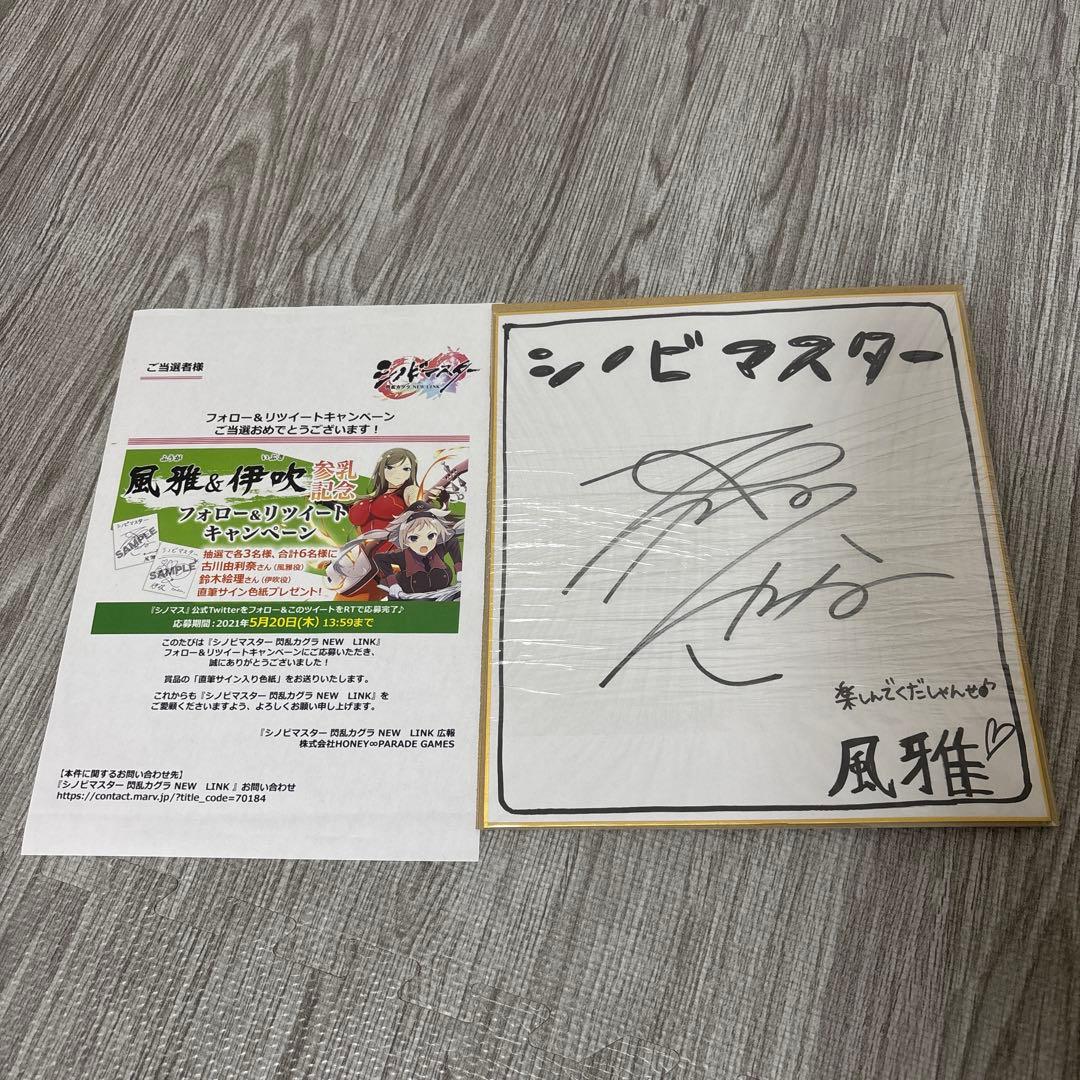 ご当選者様
シノビマスター
閃乱カグラ NEW LINK
フォロー&リツイートキャンペーン
ご当選おめでとうございます！
ふうが いぶき
風雅&伊吹 参乳記念
フォロー&リツイート
キャンペーン
シノビマスター
SAMPLE
シノビマスター
SAMPLE
抽選で各3名様、合計6名様に
古川由利奈さん（風雅役）
鈴木絵理さん（伊吹役）
直筆サイン色紙プレゼント！
『シノマス』公式Twitterをフォロー&このツイートをRTで応募完了♪
応募期間：2021年5月20日(木) 13:59まで
このたびは『シノビマスター 閃乱カグラ NEW LINK』
フォロー&リツイートキャンペーンにご応募いただき、
誠にありがとうございました！
賞品の「直筆サイン入り色紙」をお送りいたします。
これからも『シノビマスター 閃乱カグラ NEW LINK』を
ご愛顧くださいますよう、よろしくお願い申し上げます。
『シノビマスター 閃乱カグラ NEW LINK 広報
株式会社HONEY∞PARADE GAMES
【本件に関するお問い合わせ先】
『シノビマスター 閃乱カグラ NEW LINK 』お問い合わせ
https://contact.marv.jp/?title_code=70184
シノビマスター
楽しんでくだしゃんせ♪
風雅♡